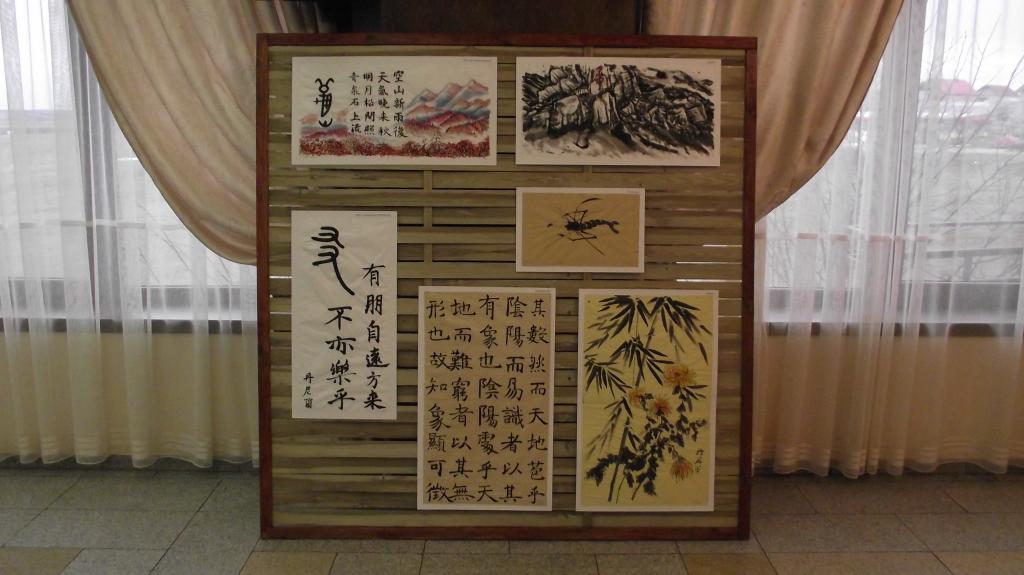 空山新雨後
天氣晚来秋
明月松間照
青泉石上流
有朋自遠方来
不亦樂乎
丹尼爾
其數然而天地苞乎
陰陽而易識者以其
有象也陰陽處乎天
地而難窮者以其無
形也故知象顯可徵